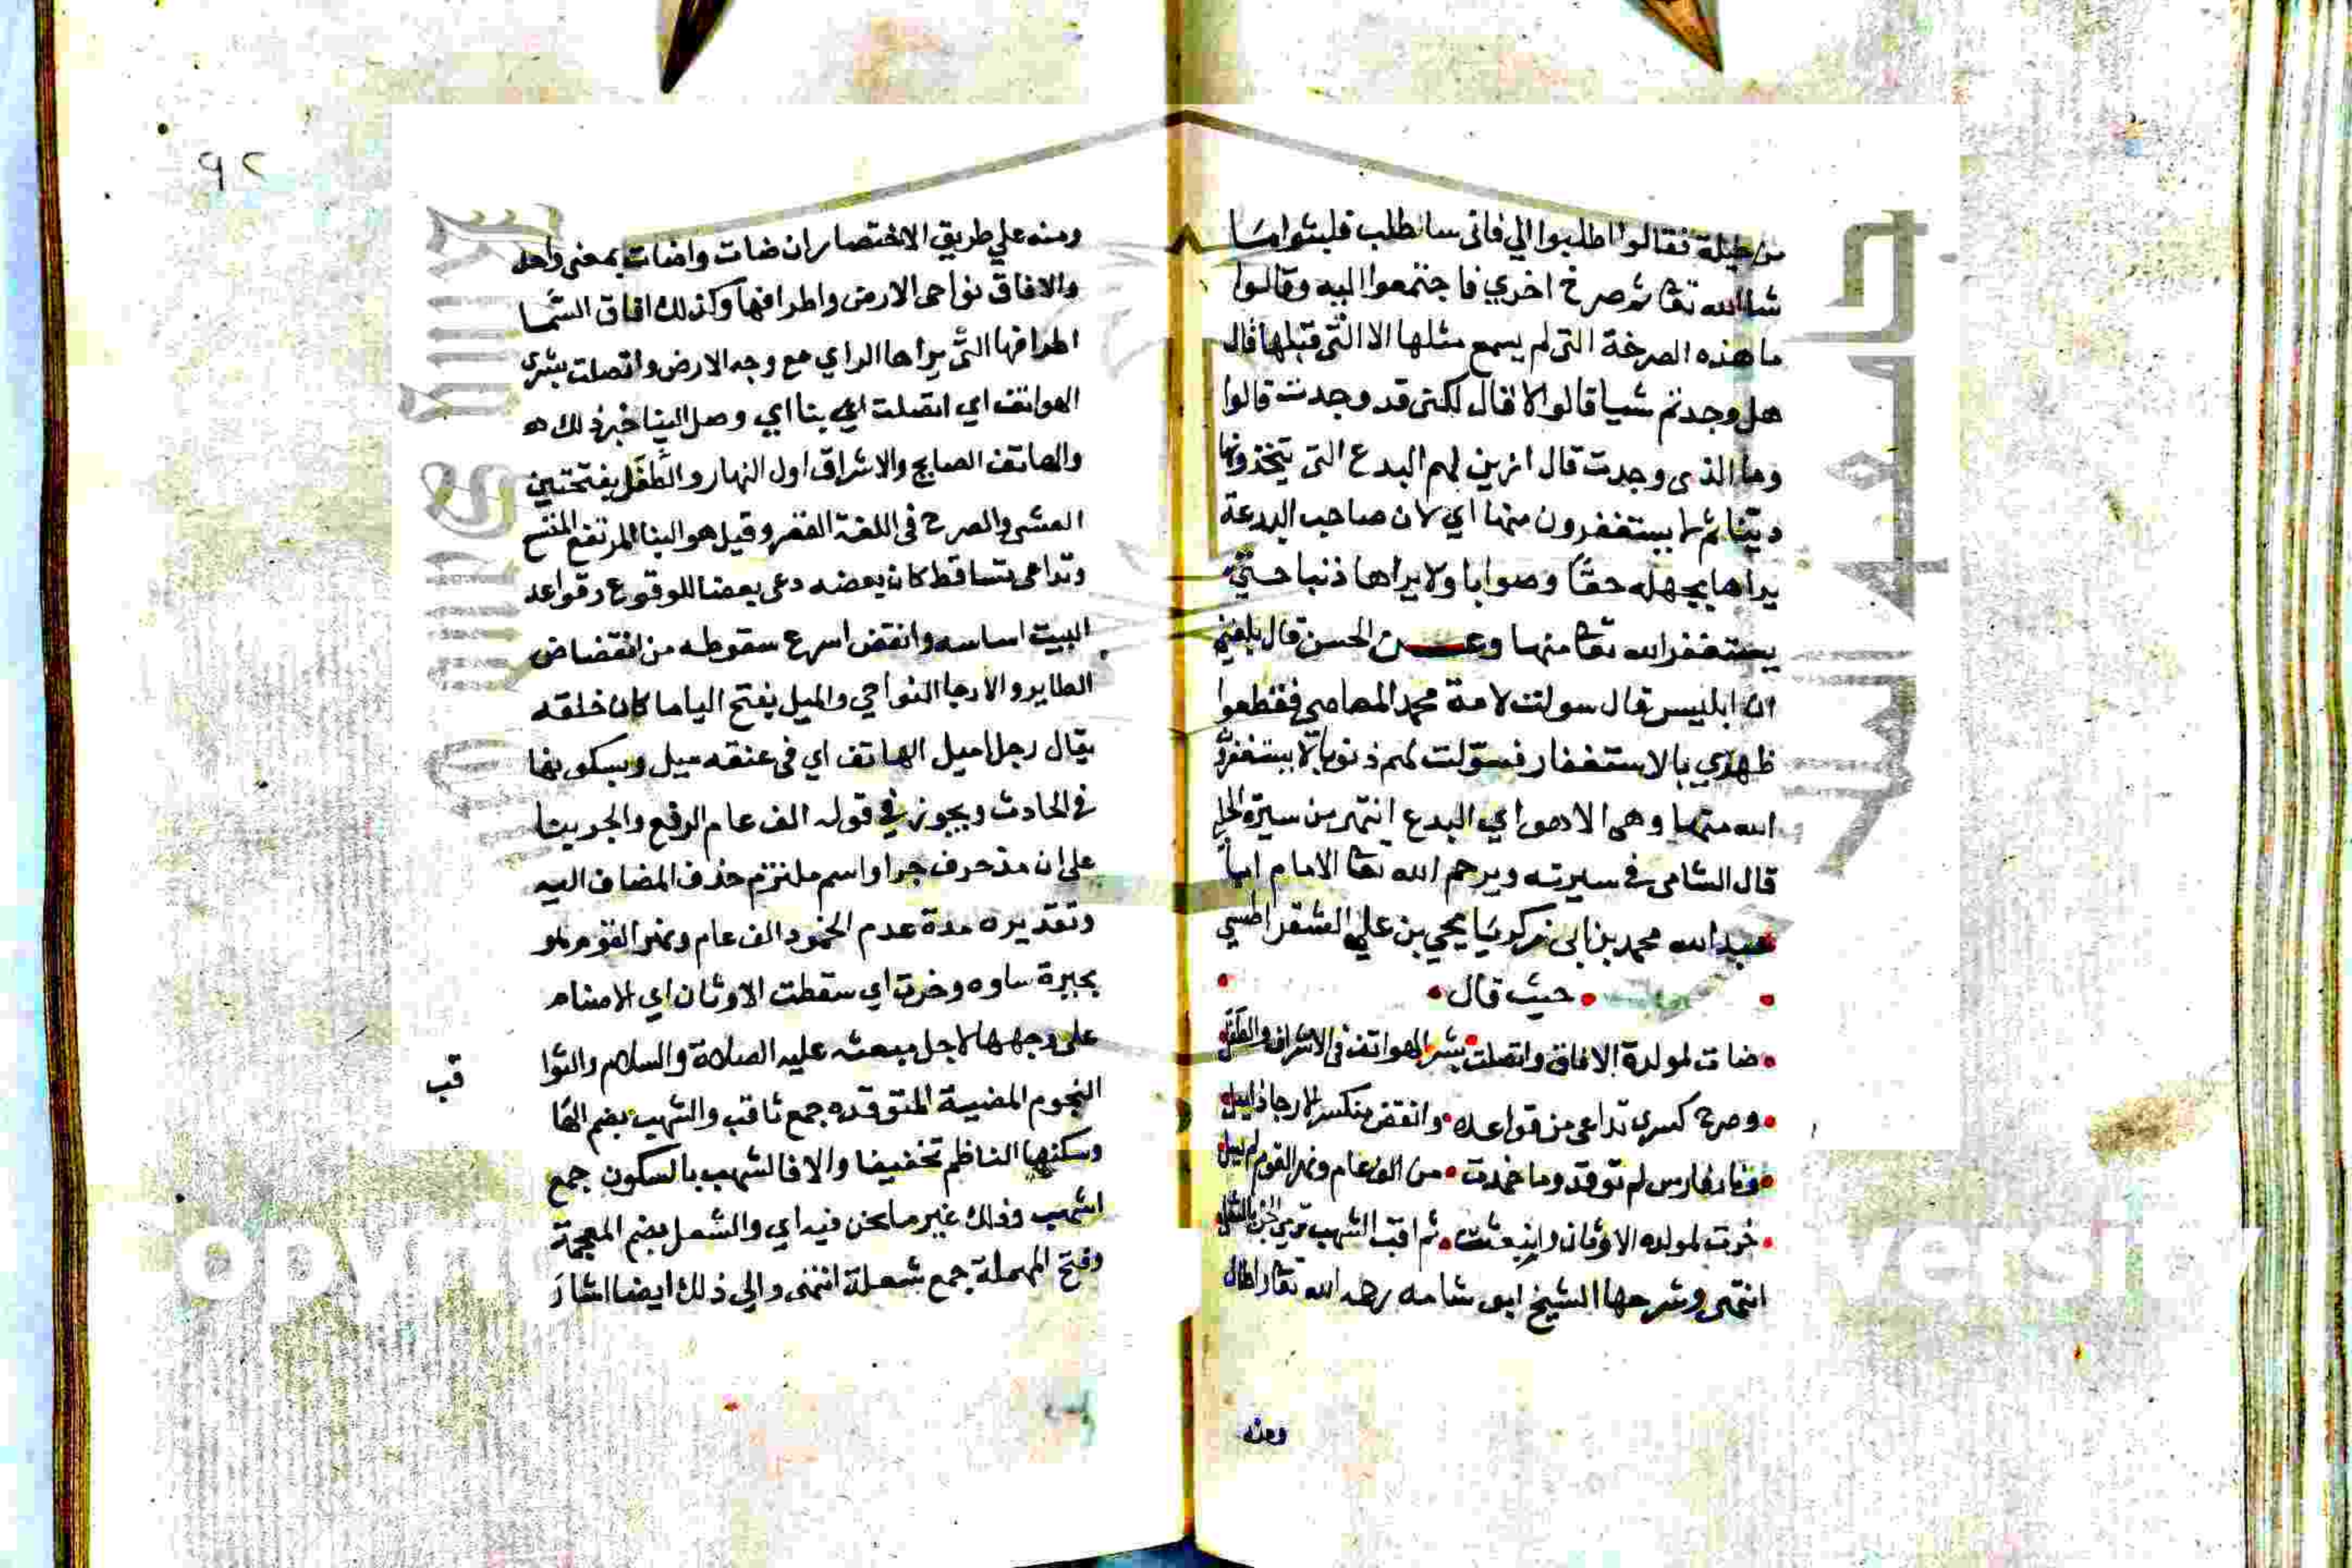 من حيلة فقالوا اطلبوا الي فاني سا طلب فلبثوا مسا
شاالله تعا ثم صرخ اخري فاجتمعوا اليه وقالوا
ما هذه الصرخة التي لم يسمع مثلها الا التي قبلها قال
هل وجدتم شيا قالوا لا قال لكني قد وجدت قالوا
وما الذي وجدت قال ازين لهم البدع التي يتخذونها
دينا ثم لا يستغفرون منها اي لان صاحب البدعة
يراها بجهله حقا وصوابا ولا يراها ذنبا حتي
يستغفر الله تعا منها وعن الحسن قال بلغني
ان ابليس قال سولت لامة محمد المعاصي فقطعوا
ظهري بالاستغفار فسولت لهم ذنوبا لا يستغفرو
الله منها وهي الاهوا اي البدع انتهي من سيرة الحل
قال الشامي في سيرته ويرحم الله تعا الامام ابا
عبد الله محمد بن ابي زكريا يحيي بن علي الشقراطسي
حيث قال
ضات لمولده الافاق واتصلت بشر الهواتف في الاشراق والطفل
وصرح كسري تداعي من قواعده وانقض منكسر الارجا ذا ميل
ونار فارس لم توقد وما خمدت من الف عام ونهر القوم لم يسل
خرت لمولده الاوثان وانبعثت ثواقب الشهب ترمي الجن بالشعل
انتهي وشرحها الشيخ ابو شامه رحمه الله تعا واطال
ومنه
٩٢
ومنه علي طريق الاختصار ان ضات واضات بمعني واحد
والافاق نواحي الارض واطرافها وكذلك افاق السما
اطرافها التي يراها الراي مع وجه الارض واتصلت بشري
الهواتف اي اتصلت اي بنا اي وصل الينا خبر ذلك
والهاتف الصايح والاشراق اول النهار والطفل بفتحتين
العشي والصرح في اللغة القصر وقيل هو البنا المرتفع المتسع
وتداعي تساقط كان بعضه دعي بعضا للوقوع وقواعد
البيت اساسه وانقض اسرع سقوطه من انقضاض
الطاير والارجا النواحي والميل بفتح اليا ما كان خلقه
يقال رجل اميل الهاتف اي في عنقه ميل وبسكونها
في الحادث ويجوز في قوله الف عام الرفع والجر بينا
علي ان مذ حرف جر او اسم ملتزم حذف المضاف اليه
وتقديره مدة عدم الخمود الف عام ونهر القوم هو
بحيرة ساوه وخرت اي سقطت الاوثان اي الاصنام
علي وجهها لاجل مبعثه عليه الصلاة والسلام والثوا
قب
النجوم المضيية المتوقده جمع ثاقب والشهب بضم الها
وسكنها الناظم تخفيفا والا فالشهب بالسكون جمع
اشهب وذلك غير ما نحن فيه اي والشعل بضم المعجمة
وفتح المهملة جمع شعلة انتهي والي ذلك ايضا اشار